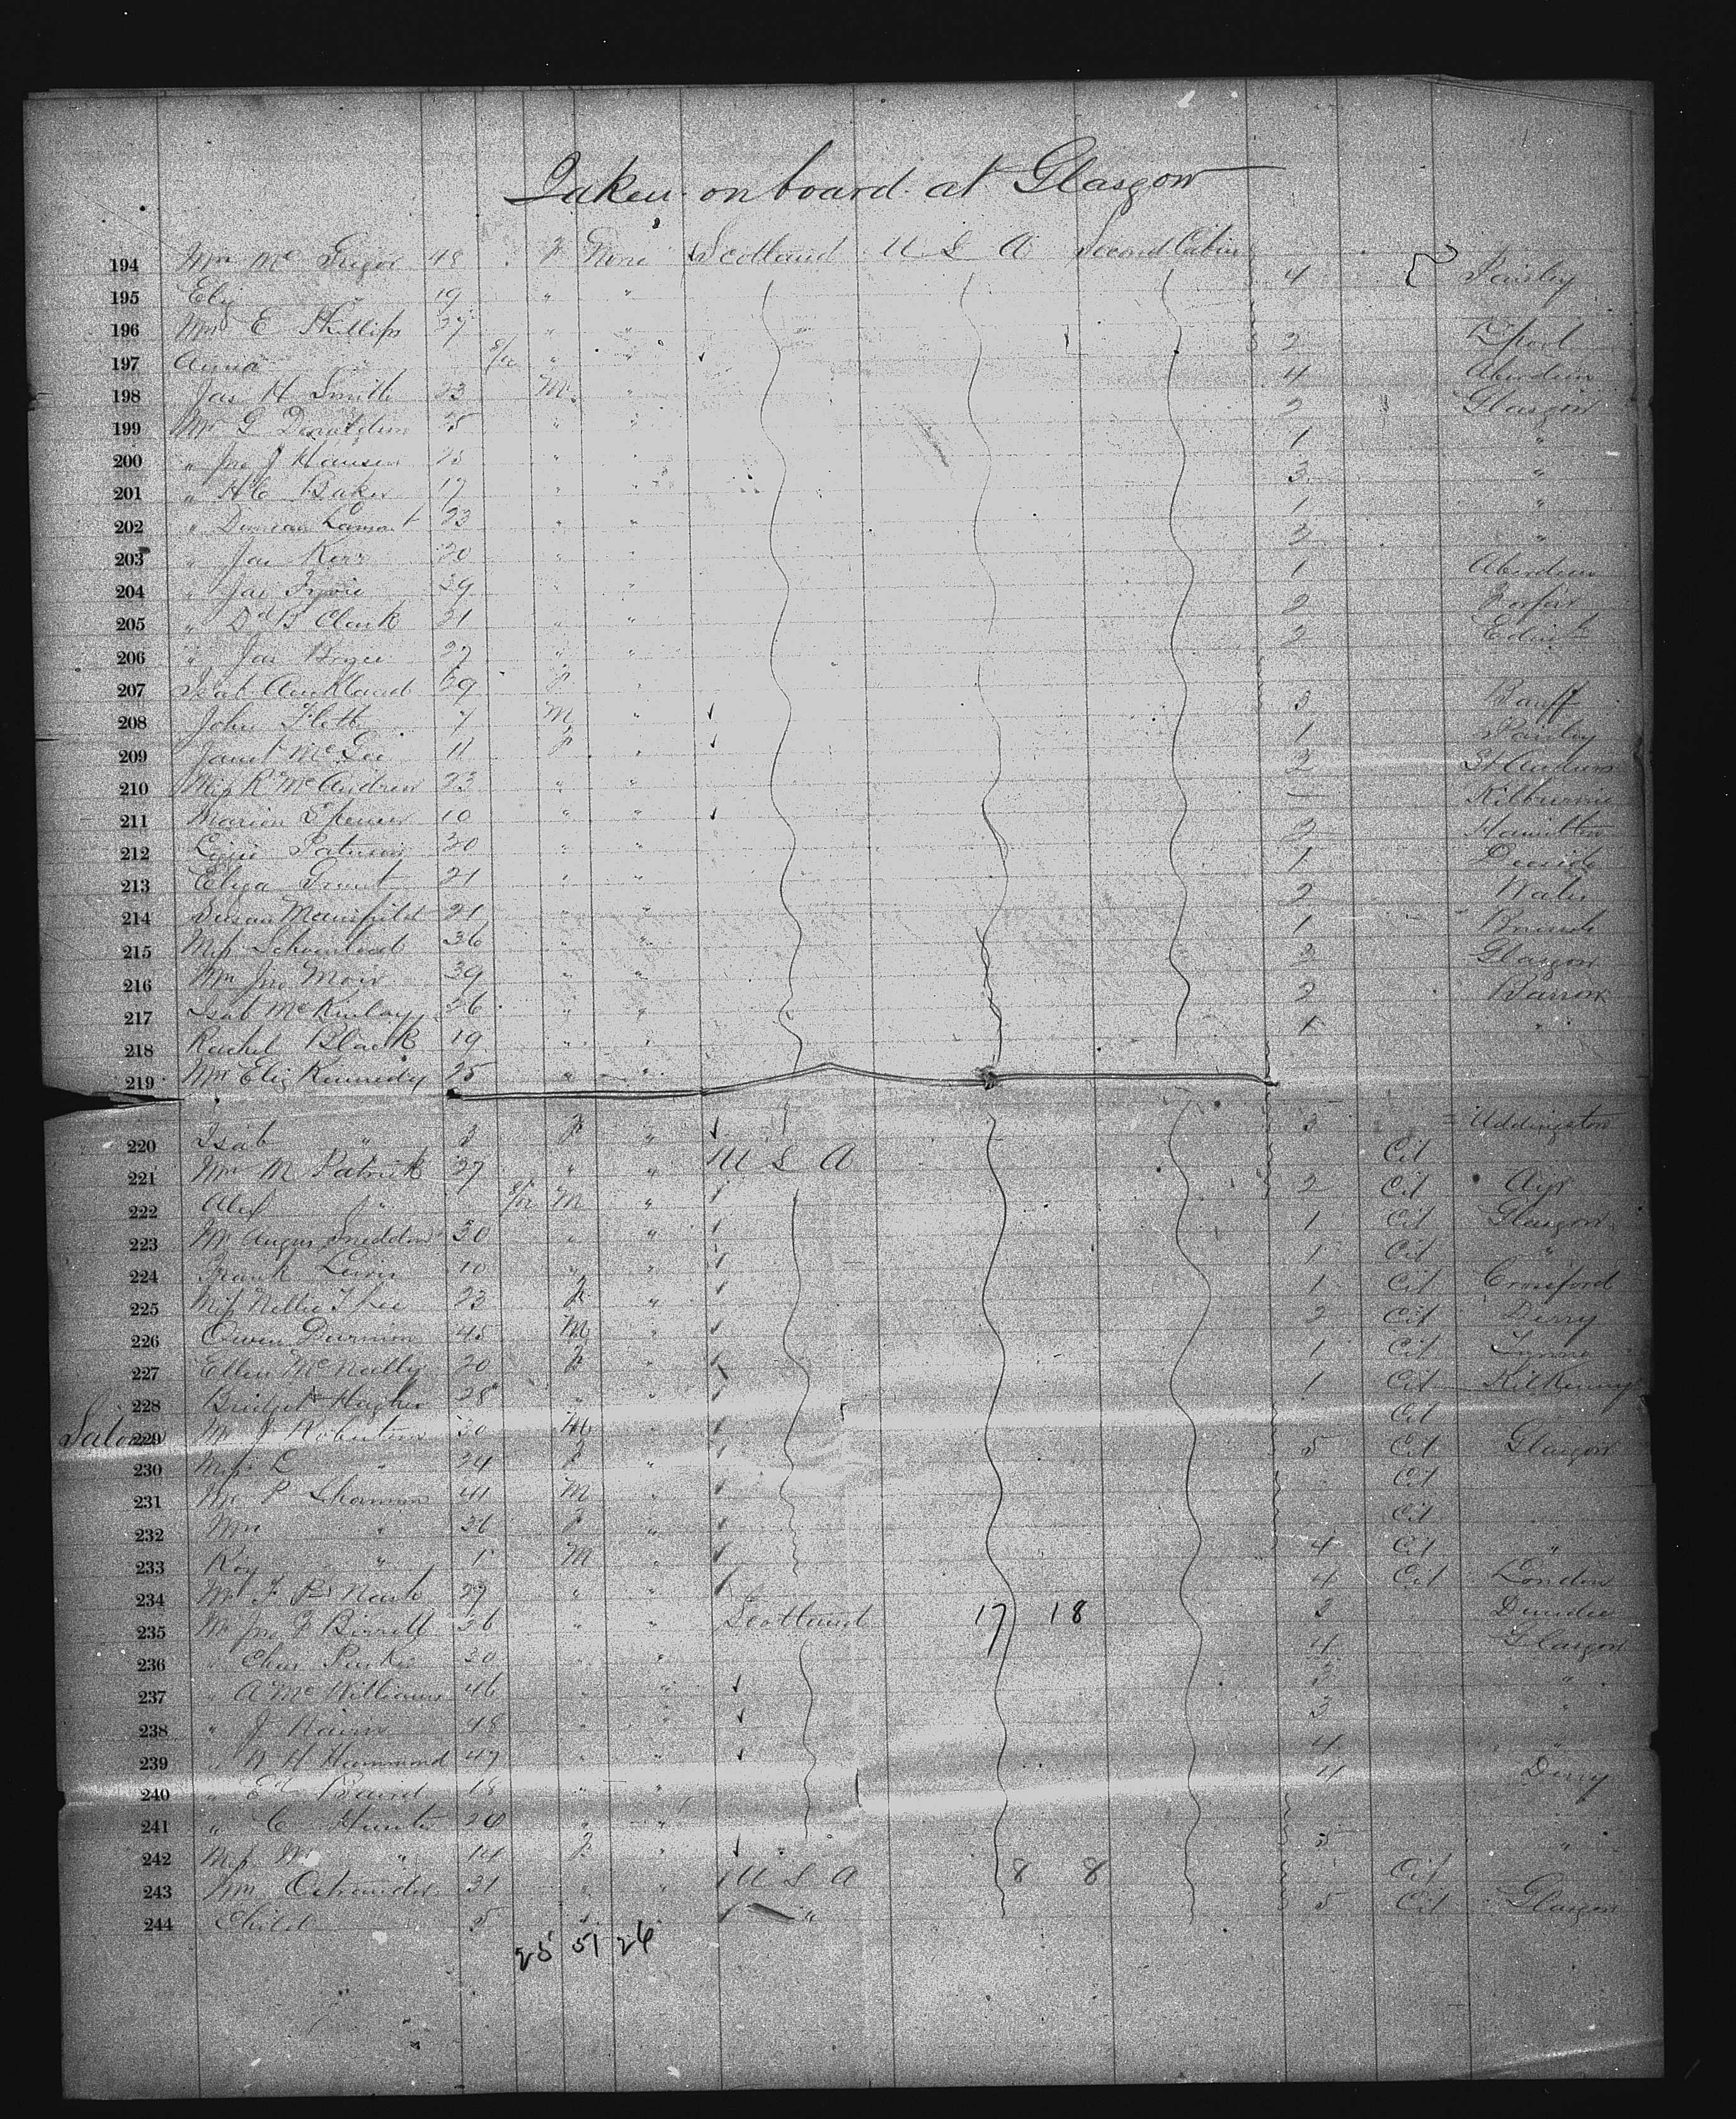 Taken on board at Glasgow
194 Mrs Mc Gregor 48 F None Scotland U S A Second Cabin
195 Eliz " 19 " " 4 Paisley
196 Mrs E Phillips 27 " "
197 Anna " " " 2 L'pool
198 Jas H Smith 23 M " 4 Aberdeen
199 Mr G Donaldson 25 " " 2 Glasgow
200 " Jno J Hansen " " 1 "
201 " H C Baker 17 " " 3 "
202 " Duncan Lamont 23 " " 1 "
203 " Jas Kerr 20 " " 2 "
204 " Jas Fyvie 29 " " 1 Aberdeen
205 " Dd B Clark 21 " " 2 Forfar
206 " Jas Bryce 27 " " 2 Edinb
207 Isab Auckland 59 F "
208 John Flett 7 M " 3 Banff
209 Janet Mc Gee 11 F " 1 Paisley
210 Miss R McAndrew 23 " " 2 St Andrews
211 Marion Spencer 10 " " Kilburnie
212 Lizzie 30 " " 2 Hamilton
213 Eliza Grant 21 " " 1 Dundee
214 Susan Mansfield 21 " " 2 Wales
215 Miss 36 " " 1
216 Mrs Jno Moir 39 " " 3 Glasgow
217 Isab McKinlay 26 " " 2 Barrow
218 Rachel Black 19 " " 1 "
219 Mrs Eliz Kennedy 25 " "
220 Isab " 3 F " 3 Uddingston
221 Mrs M Patrick 27 " " U S A Cit
222 Alex " M " 2 Cit Ayr
223 Mr Angus Sneddon 30 " " 1 Cit Glasgow
224 Frank Lewis 10 " " 1 Cit "
225 Miss Nellie T Lee 23 F " 1 Cit Crossford
226 Owen Durnion 45 M " 2 Cit Derry
227 Ellen McNally 20 F " 1 Cit
228 Bridget Hughes 28 " " 1 Cit Kilkenny
Saloon 229 Mr J Robertson 30 M " Cit
230 Miss L " 24 F " 5 Cit Glasgow
231 Mr P Shannon 41 M " Cit
232 Mrs " 36 F " Cit
233 Roy " 1 M " 4 Cit "
234 Mr F B Nash 27 " " 4 Cit London
235 Mr Jno G Birrell 26 " " Scotland 17 18 2 Dundee
236 " Chas Parker 30 " " 4 Glasgow
237 " A McWilliams 46 " " 3 "
238 " J Nairn 48 " " 3 "
239 " W H Hammond 47 " " 4 "
240 " E E Baird 18 " " 4 Derry
241 " C Hunter 20 " "
242 Miss M " 14 F " 5 "
243 Mrs Ostrander 31 " " U S A 8 8 Cit
244 Child 5 " " 5 Cit Glasgow
25 51 26